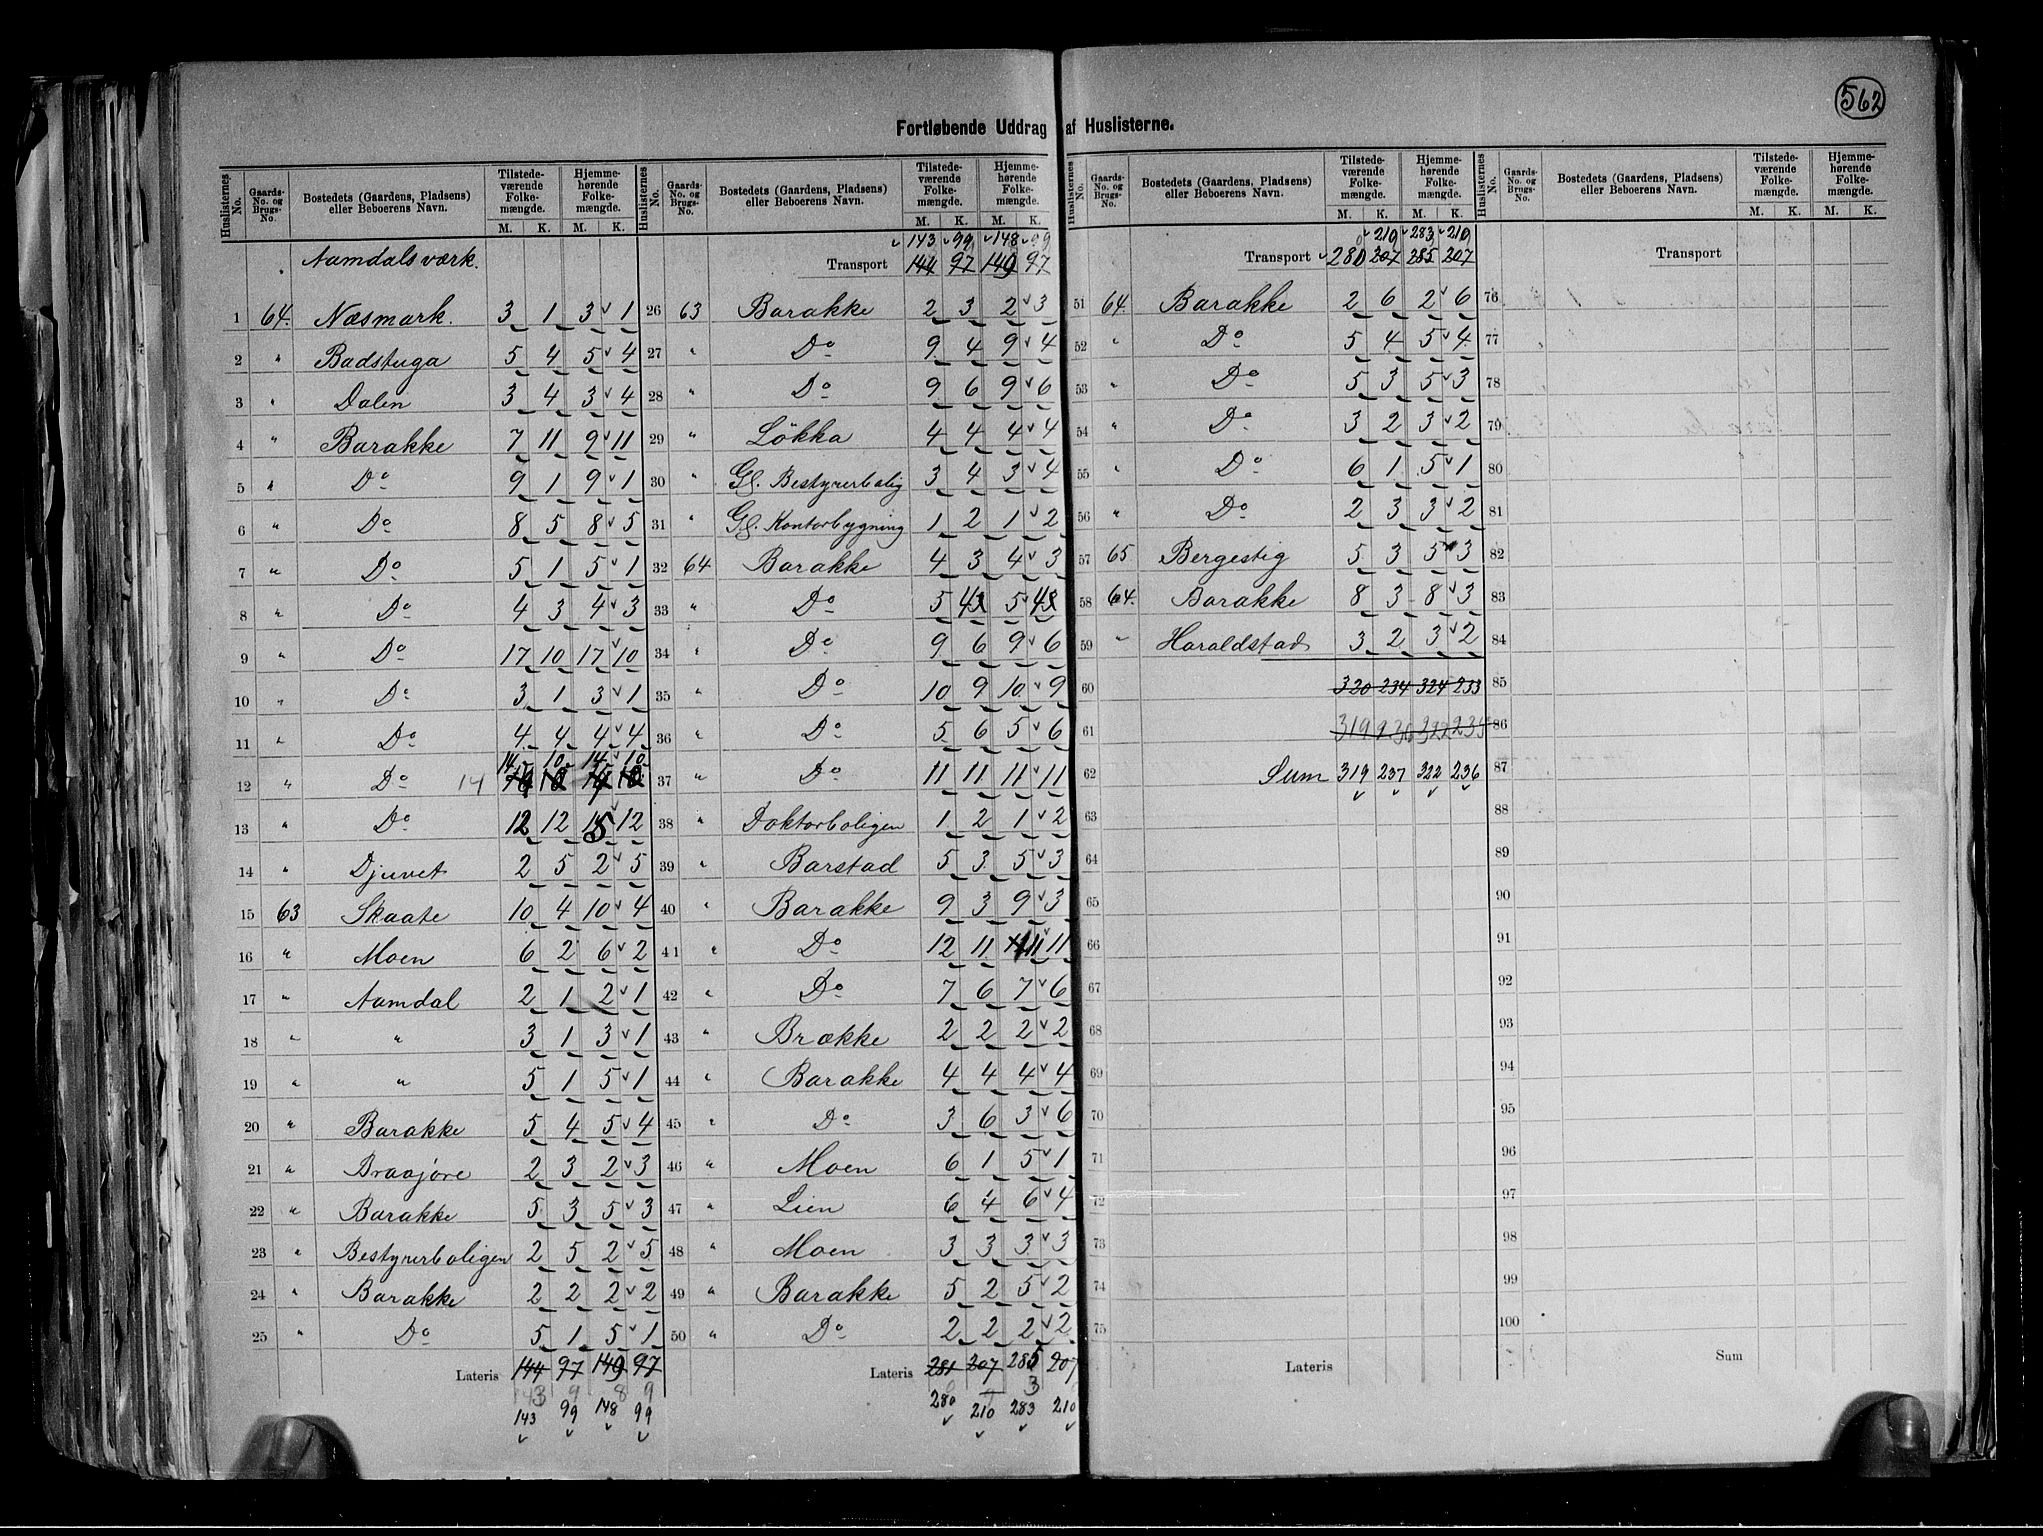 562
Fortløbende Uddrag af Huslisterne.
Huslisternes No. Gaards-No. og Brugs-No. Bostedets (Gaardens, Pladsens) eller Beboerens Navn. Tilstedeværende Folkemængde. M. K. Hjemmehørende Folkemængde. M. K.
Aamdals værk.
1 64. Næsmark. 3 1 3 1
2 " Badstuga 5 4 5 4
3 " Dalen 3 4 3 4
4 " Barakke 7 11 9 11
5 " Do 9 1 9 1
6 " Do 8 5 8 5
7 " Do 5 1 5 1
8 " Do 4 3 4 3
9 " Do 17 10 17 10
10 " Do 3 1 3 1
11 " Do 4 4 4 4
12 " Do 14 14 10 14 10
13 " Do 12 12 15 12
14 " Djuvet 2 5 2 5
15 63 Skaate 10 4 10 4
16 " Moen 6 2 6 2
17 " Aamdal 2 1 2 1
18 " " 3 1 3 1
19 " " 5 1 5 1
20 " Barakke 5 4 5 4
21 " Draajøre 2 3 2 3
22 " Barakke 5 3 5 3
23 " Bestyrerboligen 2 5 2 5
24 " Barakke 2 2 2 2
25 " Do 5 1 5 1
Lateris 144 97 149 97
143 9 8 9
143 99 148 99
Huslisternes No. Gaards-No. og Brugs-No. Bostedets (Gaardens, Pladsens) eller Beboerens Navn. Tilstedeværende Folkemængde. M. K. Hjemmehørende Folkemængde. M. K.
143 99 148 99
Transport 144 97 149 97
26 63 Barakke 2 3 2 3
27 " Do 9 4 9 4
28 " Do 9 6 9 6
29 " Løkka 4 4 4 4
30 " Gl. Bestyrerbolig 3 4 3 4
31 " Gl. Kontorbygning 1 2 1 2
32 64 Barakke 4 3 4 3
33 " Do 5 4 5 4
34 " Do 9 6 9 6
35 " Do 10 9 10 9
36 " Do 5 6 5 6
37 " Do 11 11 11 11
38 " Doktorboligen 1 2 1 2
39 " Barstad 5 3 5 3
40 " Barakke 9 3 9 3
41 " Do 12 11 11 11
42 " Do 7 6 7 6
43 " Brække 2 2 2 2
44 " Barakke 4 4 4 4
45 " Do 3 6 3 6
46 " Moen 6 1 5 1
47 " Lien 6 4 6 4
48 " Moen 3 3 3 3
49 " Barakke 5 2 5 2
50 " Do 2 2 2 2
Lateris 281 207 285 207
3
280 210 283 210
Huslisternes No. Gaards-No. og Brugs-No. Bostedets (Gaardens, Pladsens) eller Beboerens Navn. Tilstedeværende Folkemængde. M. K. Hjemmehørende Folkemængde. M. K.
0 210 283 210
Transport 281 207 285 207
51 64. Barakke 2 6 2 6
52 " Do 5 4 5 4
53 " Do 5 3 5 3
54 " Do 3 2 3 2
55 " Do 6 1 5 1
56 " Do 2 3 3 2
57 65 Bergestig 5 3 5 3
58 64. Barakke 8 3 8 3
59 " Haraldstad 3 2 3 2
60 320 234 324 233
61 319 236 322 235
62 Sum 319 237 322 236
63
64
65
66
67
68
69
70
71
72
73
74
75
Lateris
Huslisternes No. Gaards-No. og Brugs-No. Bostedets (Gaardens, Pladsens) eller Beboerens Navn. Tilstedeværende Folkemængde. M. K. Hjemmehørende Folkemængde. M. K.
Transport
76
77
78
79
80
81
82
83
84
85
86
87
88
89
90
91
92
93
94
95
96
97
98
99
100
Sum